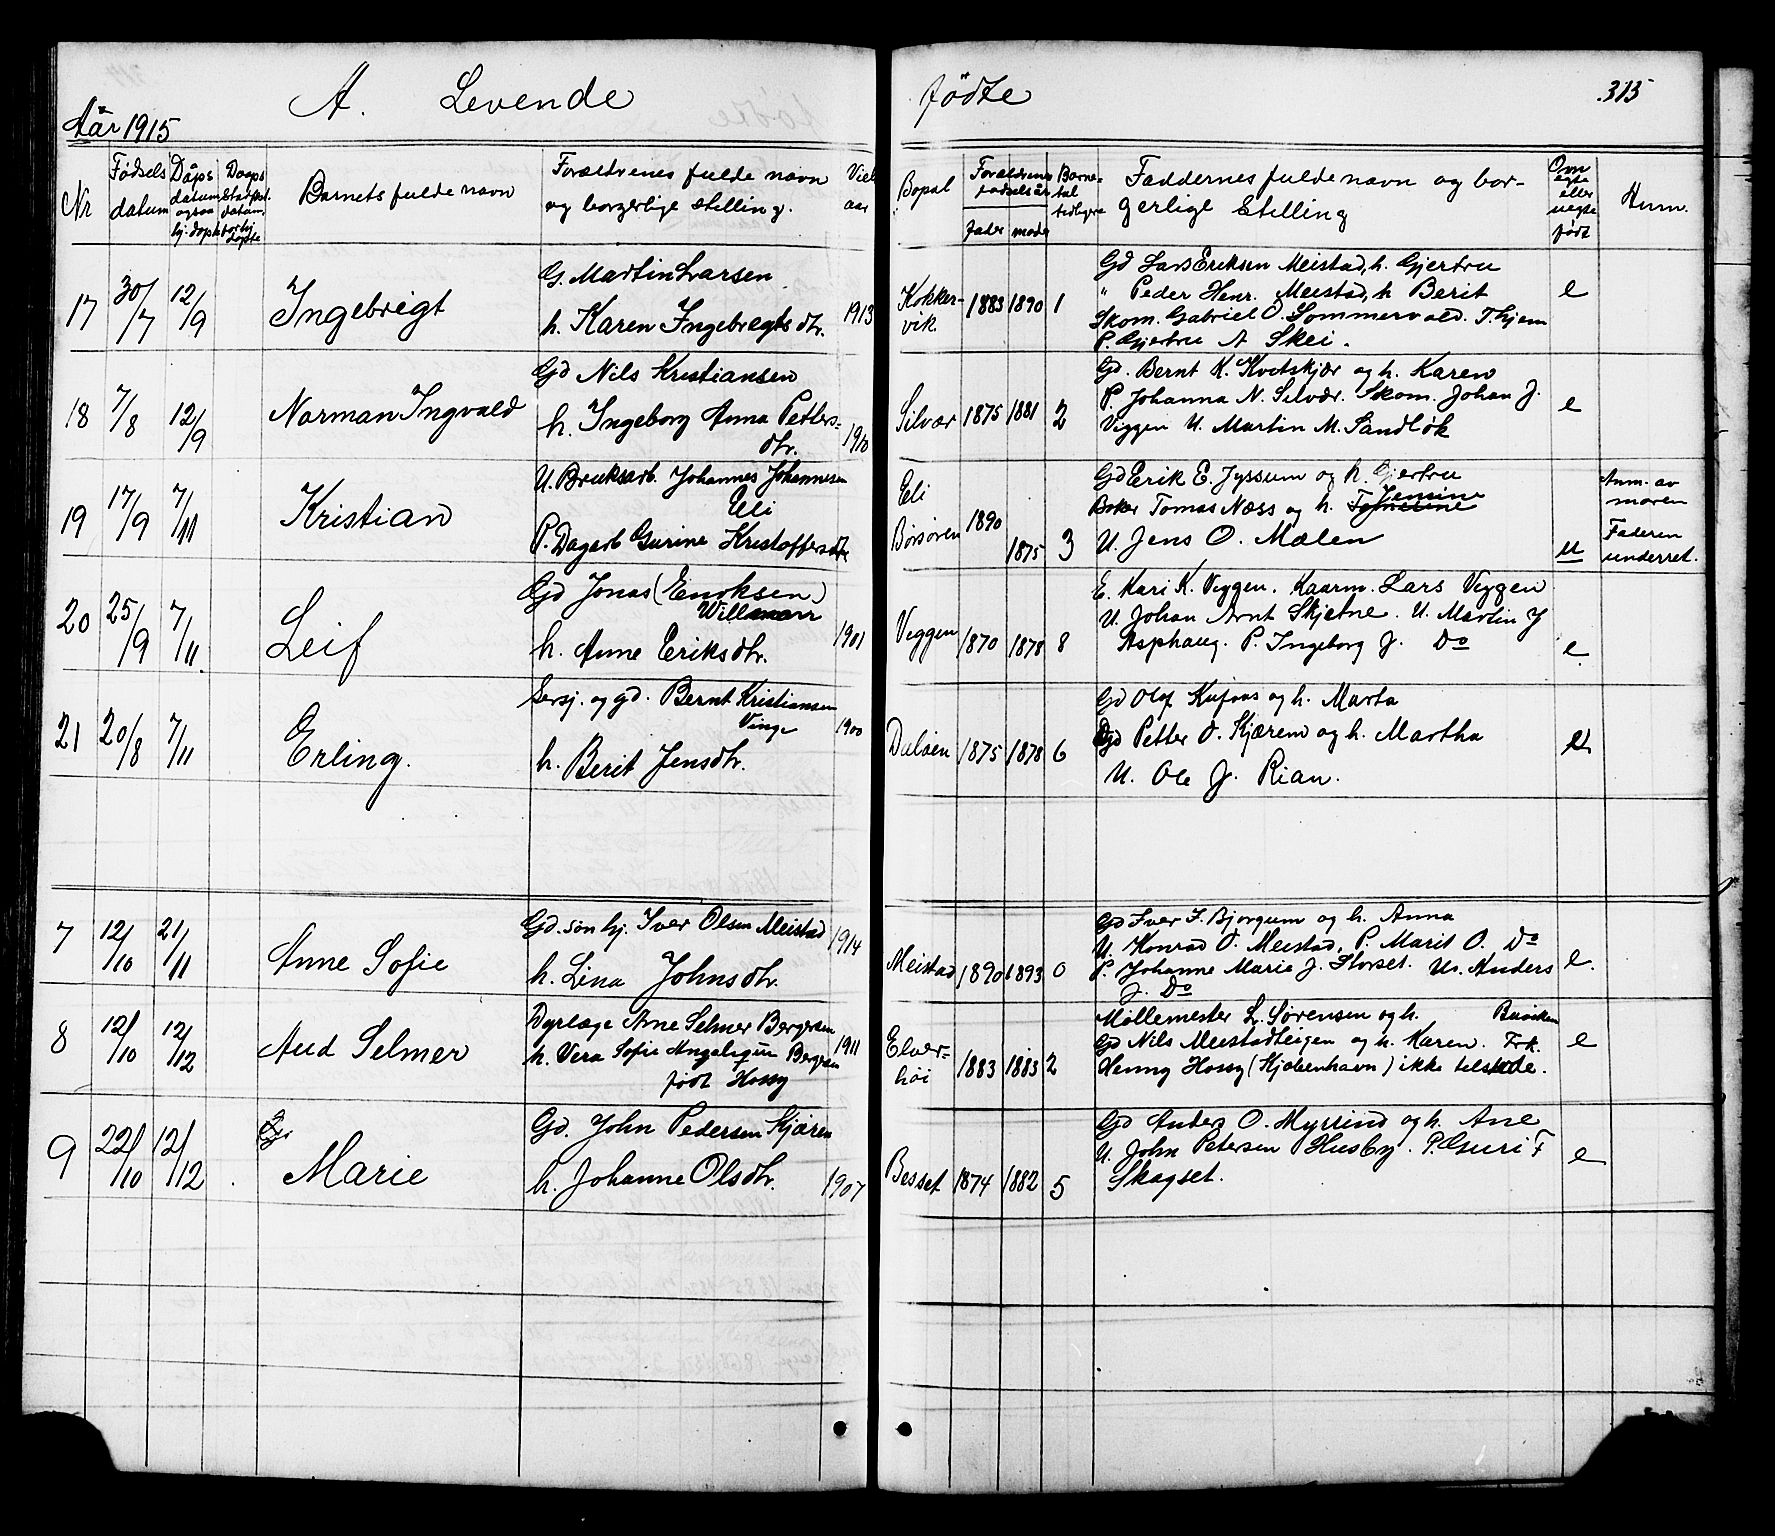 A. Levende fødte
313
Aar 1915
Nr
Fødsels datum
Dåps datum
Barnets fulde navn
Forældrenes fulde navn
og borgerlige stilling.
Viels aar
Bopæl
Forældrenes fødselsår
fader moder
Faddernes fulde navn og bor-
gerlige stilling
Om egte eller uegte født
Anm.
17 30/7 12/9 Ingebrigt
G. Martin Larsen
h. Karen Ingebregtsdtr. 1913
Kokker-
vik 1883 1890 1
Gd Lars Eriksen Meistad, h. Gjertru
" Peder Henr. Meistad, h Berit
Skom. Gabriel O. Sommervold. T. hjem
P. Gjertru A Skei.
e
18 7/8 12/9 Norman Ingvald
Gd Nils Kristiansen
h. Ingeborg Anna Petters-
dtr. 1910
Silvær 1875 1881 2
Gd. Bernt K. Kvitskjær og h. Karen
P. Johanna N. Silvær. Skom. Johan J.
Viggen U. Martin M. Sandløk
e
19 17/9 7/11 Kristian
U. Bruksarb. Johannes Johannesen
Eli
P. Dagarb Gurine Kristoffersdtr
Eli
Børsøren 1890
1875 3
Gd Erik E. Jyssum og h. Gjertru
Tomas Næss og h. Jensine
U. Jens O. Mælen
u
Anm. av
moren
Faderen
underret.
20 25/9 7/11 Leif
Gd Jonas (Enoksen)
Willmann
h. Anne Eriksdtr. 1901
Viggen 1870 1878 8
E. Kari K. Viggen. Kaarm. Lars Viggen
U. Johan Arnt Skjetne. U. Martin J
Asphaug. P. Ingeborg J. Do
e
21 20/8 7/11 Erling.
Sersj. og gd. Bernt Kristiansen
Vinge 1900
h. Berit Jensdtr.
1875 1878 6
Gd Olof Kufaas og h. Marta
Gd Petter O. Kjærem og h. Martha
U. Ole J. Rian.
e
7 12/10 21/11 Anne Sofie
Gd. søn hj. Iver Olsen Meistad 1914
h. Lina Johnsdtr.
Meistad 1890 1893 0
Gd Iver I. Bjørgum og h. Anna
U. Konrad O. Meistad, P. Marit O. Do
P. Johanne Marie J. Storset. U. Anders
J. Do
e.
8 12/10 12/12 Aud Selmer
Dyrlæge Arne Selmer Bergersen
h. Vera Sofie Angelique Bergersen 1911
født Hossy
Elver-
høi 1883 1883 2
Møllemester L. Sørensen og h. Buviken
Gd Nils Meistadteigen og h. Karen. Frk.
Henny Hossy (Kjøbenhavn) ikke tilstede.
e
9 22/10 12/12 Marie
Gd. John Pedersen Kjæren
h. Johanne Olsdtr. 1907
Besset 1874 1882 5
Gd Anders O. Myrrind og h. Ane
U. John Petersen Husby. P. Guri F
Skagset.
e